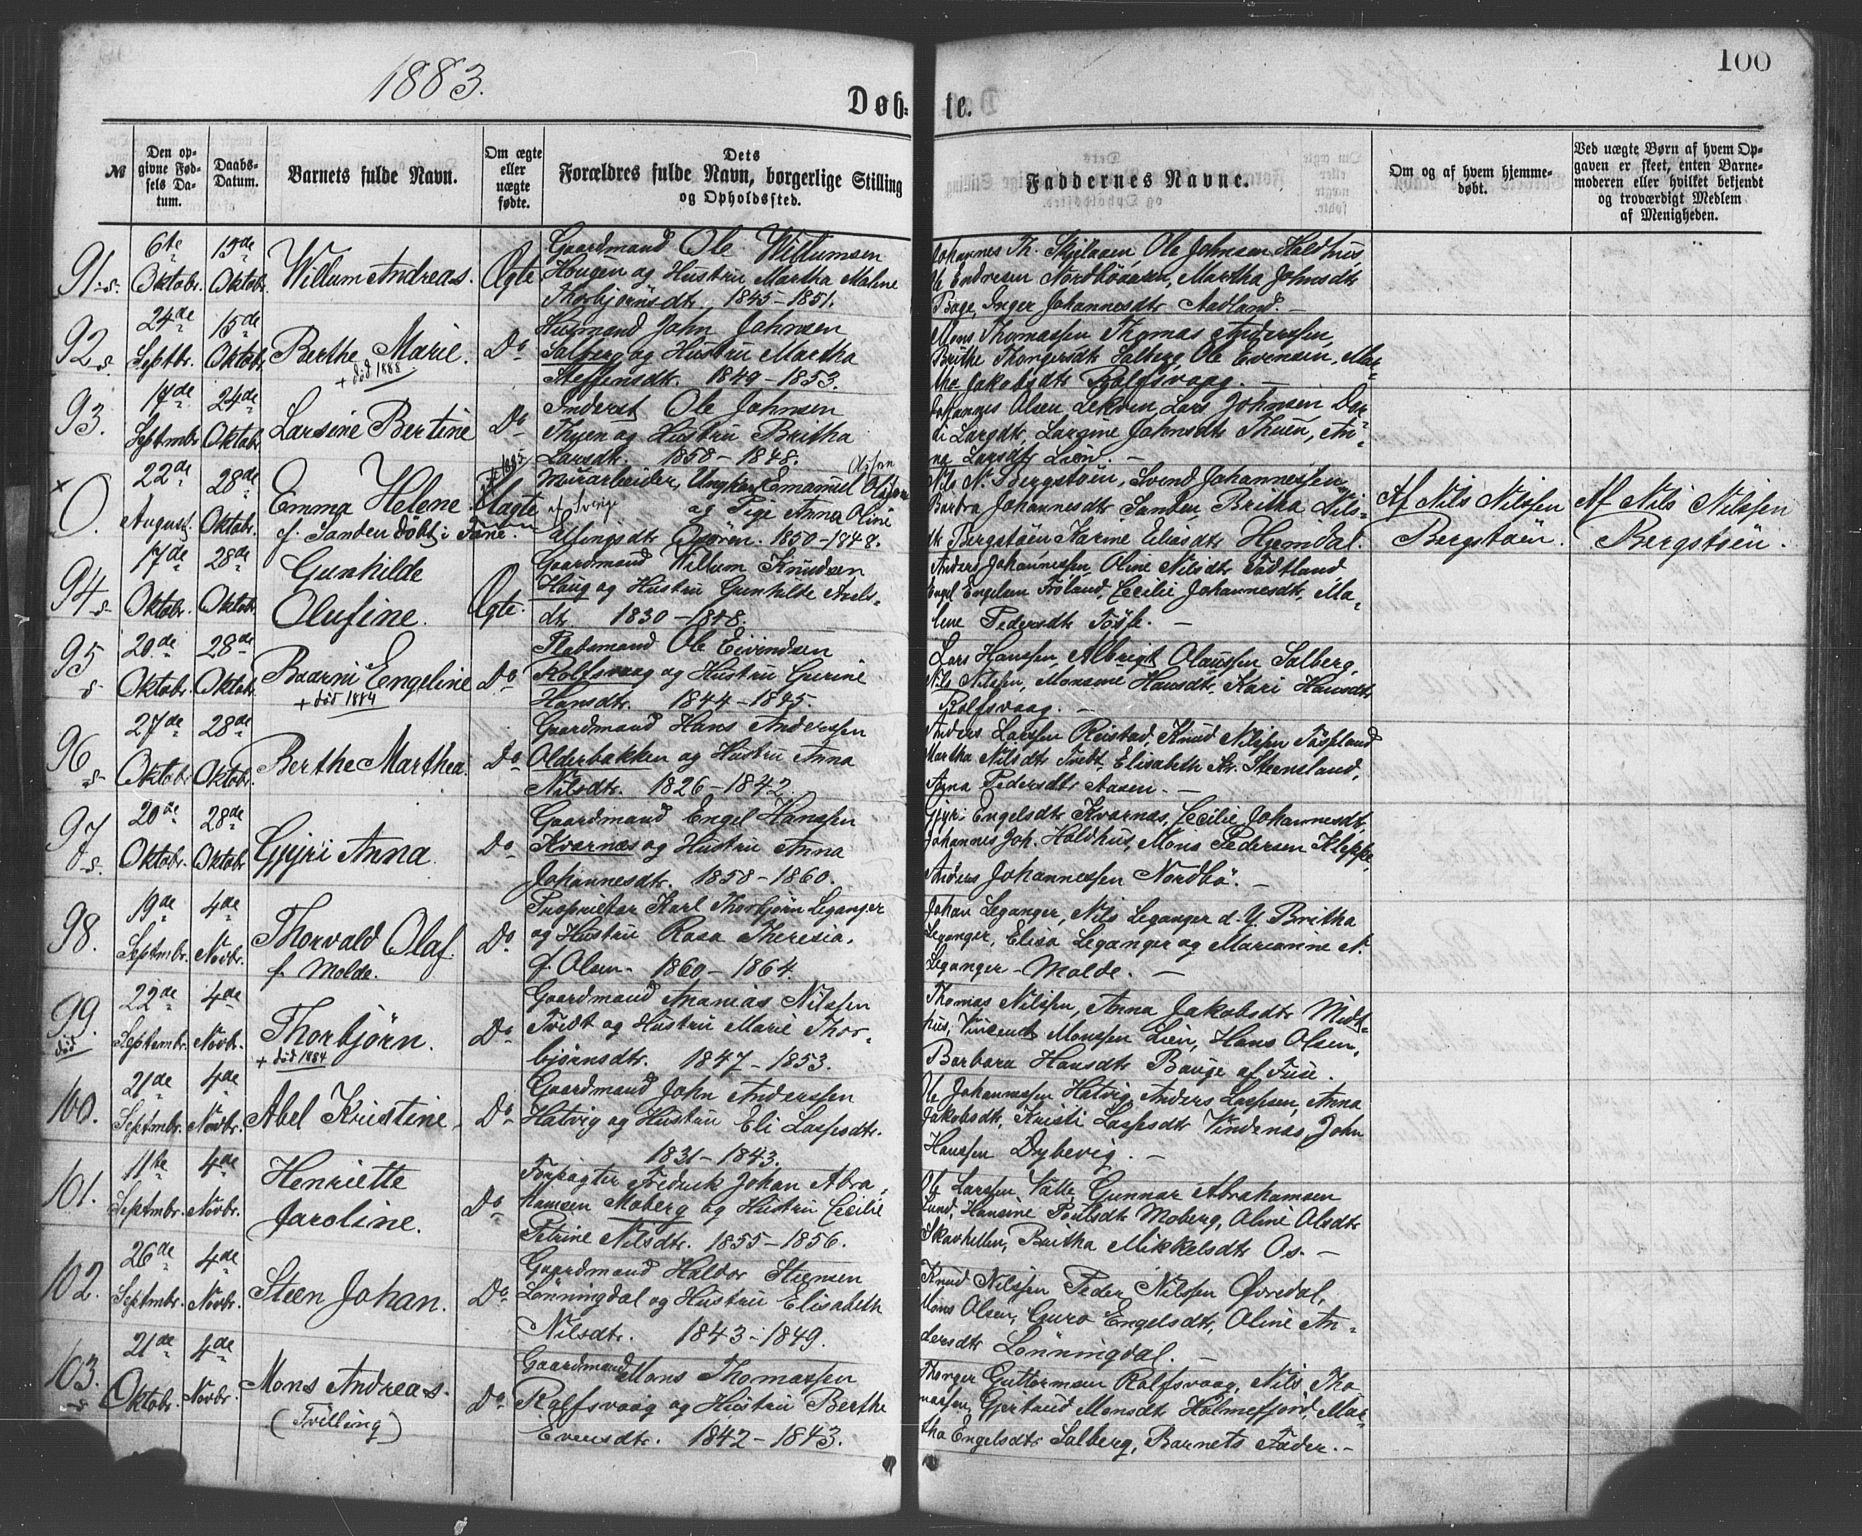 1883.
100
Døb-
te.
№
Den op-
givne Fød-
sels Da-
tum.
Daabs-
Datum.
Barnets fulde Navn.
Om ægte
eller
uægte
fødte.
Dets
Forældres fulde Navn, borgerlige Stilling
og Opholdssted.
Faddernes Navne.
Om og af hvem hjemme-
døbt.
Ved uægte Børn af hvem Op-
gaven er skeet, enten Barne-
moderen eller hvilket bekjendt
og troværdigt Medlem
af Menigheden.
91.
6te
Oktobr.
15de
Oktobr.
Willum Andreas.
Ægte
Gaardmand Ole Willumsen
Hougen og Hustru Martha Malene
Thorbjörnsdtr. 1845-1851.
Johannes Th. Skjelaaen Ole Johnsen Haldhus,
Ole Endresen Nordböaasen, Martha Johnsdtr
Boge, Inger Johannesdtr Aadland. -
92.
24de
Septbr.
15de
Oktobr.
Berthe Marie.
+ död 1888
Do
Husmand John Johnsen
Salberg og Hustru Martha
Steffensdtr. 1849-1853.
Mons Thomassen Thomas Anderssen,
Brithe Thorgersdtr Salberg, Ole Evensen, Mar-
tha Jakobsdtr Rolfsvaag. -
93.
17de
Septmbr.
24de
Oktobr.
Larsine Bertine
Do
Inderst Ole Johnsen
Thuen og Hustru Britha
Larsdtr. 1858-1848.
Johannes Olsen Lekven, Lars Johnsen Dor-
di Larsdtr, Larsine Johnsdtr Thuen, An-
na Larsdtr Lien. -
x
O.
22de
August.
28de
Oktobr.
Emma Helene.
f. Sanden Döbt i Fane.
Uægte
Murarbeider, Ungkarl Emanuel Olsson
af Sverige og Pige Anna Oline
Ellingsdtr Björöen. 1850-1848.
Nils N. Bergstöen, Svend Johannessen
Barbra Johannesdtr Sanden, Britha Nils-
dtr Bergstöen Karine Eliasdtr Hjemdal.
Af Nils Nilssen
Bergstöen.
Af Nils Nilssen
Bergstöen.
94.
17de
Oktobr.
28de
Oktobr.
Gunhilde
Olufine.
Ægte.
Gaardmand Willum Knudsen
Houg og Hustru Gunhilde Axels-
dtr. 1830-1848.
Anders Johannessen Oline Nilsdtr Tadtland
Engel Engelsen Fröland, Cecilie Johannesdtr, Ma-
lene Pedersdtr Tösse. -
95.
20de
Oktobr.
28de
Oktobr.
Baarni Engeline
+ död 1884
Do
Pladsmand Ole Eivindsen
Rolfsvaag og Hustru Gurine
Hansdtr. 1844-1845.
Lars Hanssen, Albrigt Olaussen Salberg,
Nils Nilssen, Monsine Hansdtr, Kari Hansdtr
Rolfsvaag. -
96.
27de
Oktobr.
28de
Oktobr.
Berthe Marthea.
Do
Gaardmand Hans Anderssen
Olderbakken og Hustru Anna
Nilsdtr. 1826-1842.
Anders Larssen Reistad, Knud Nilssen Tösseland
Martha Nilsdtr Tvedt, Elisabeth Kr. Steensland,
Anna Pedersdtr Aasen. -
97.
20de
Oktobr.
28de
Oktobr.
Gjyri Anna.
Do
Gaardmand Engel Hanssen
Kvarnæs og Hustru Anna
Johannesdtr. 1858-1860.
Gjyri Engelsdtr Kvarnæs, Cecilie Johannesdtr,
Johannes Joh. Haldhus, Mons Pedersen Kleppe,
Anders Johannessen Nordbö. -
98.
19de
Septmbr.
4de
Novbr.
Thorvald Olaf.
f. Molde.
Do
Proprietær Karl Thorbjörn Leganger
og Hustru Rosa Theresia,
f. Olsen - 1860-1864.
Johan Leganger, Nils Leganger d. Y. Britha
Leganger, Elisa Leganger og Marianne N.
Leganger - Molde. -
99.
död
22de
Septembr.
4de
Novbr.
Thorbjörn.
+ död 1884
Do
Gaardmand Ananias Nilssen
Tvedt og Hustru Marie Thor-
björnsdtr. 1847-1853.
Thomas Nilssen, Anna Jakobsdtr Midt-
hus, Vincent Monssen Lien, Hans Olsen,
Barbara Hansdtr Bauge af Fuse.
100.
21de
Septmbr.
4de
Novbr.
Abel Kristine
Do
Gaardmand John Anderssen
Hatvig og Hustru Eli Larsdtr.
1831-1843.
Ole Johannessen Hatvig, Anders Larssen, Anna
Jakobsdtr, Kristi Larsdtr Vindenæs, John
Hanssen Drybevig. -
101.
11te
Septmbr.
4de
Novbr.
Henriette
Jaroline.
Do
Forpagter Fredrik Johan Abra-
hamsen Moberg og Hustru Cecilie
Petrine Nilsdtr. 1855-1856.
Ole Larssen Valle, Gunnar Abrahamsen
Lund, Hansine Poulsdtr Moberg, Oline Olsdtr
Skarhellen, Britha Mikkelsdtr Os. -
102.
26de
Septmbr.
4de
Novbr.
Steen Johan.
Do
Gaardmand Haldor Steensen
Lönningdal og Hustru Elisabeth
Nilsdtr. 1843-1849.
Knud Nilssen Peder Nilssen Øvredal,
Mons Olsen, Guro Engelsdtr, Oline An-
dersdtr Lönningdal. -
103.
21de
Oktobr.
4de
Novbr.
Mons Andreas.
(Tvilling)
Do
Gaardmand Mons Thomassen
Rolfsvaag og Hustru Berthe
Evensdtr. 1842-1843.
Thorger Guttormsen Rolfsvaag, Nils Tho-
massen, Gjertrud Monsdtr Holmefjord, Mar-
tha Engelsdtr Salberg, Barnets Fader. -